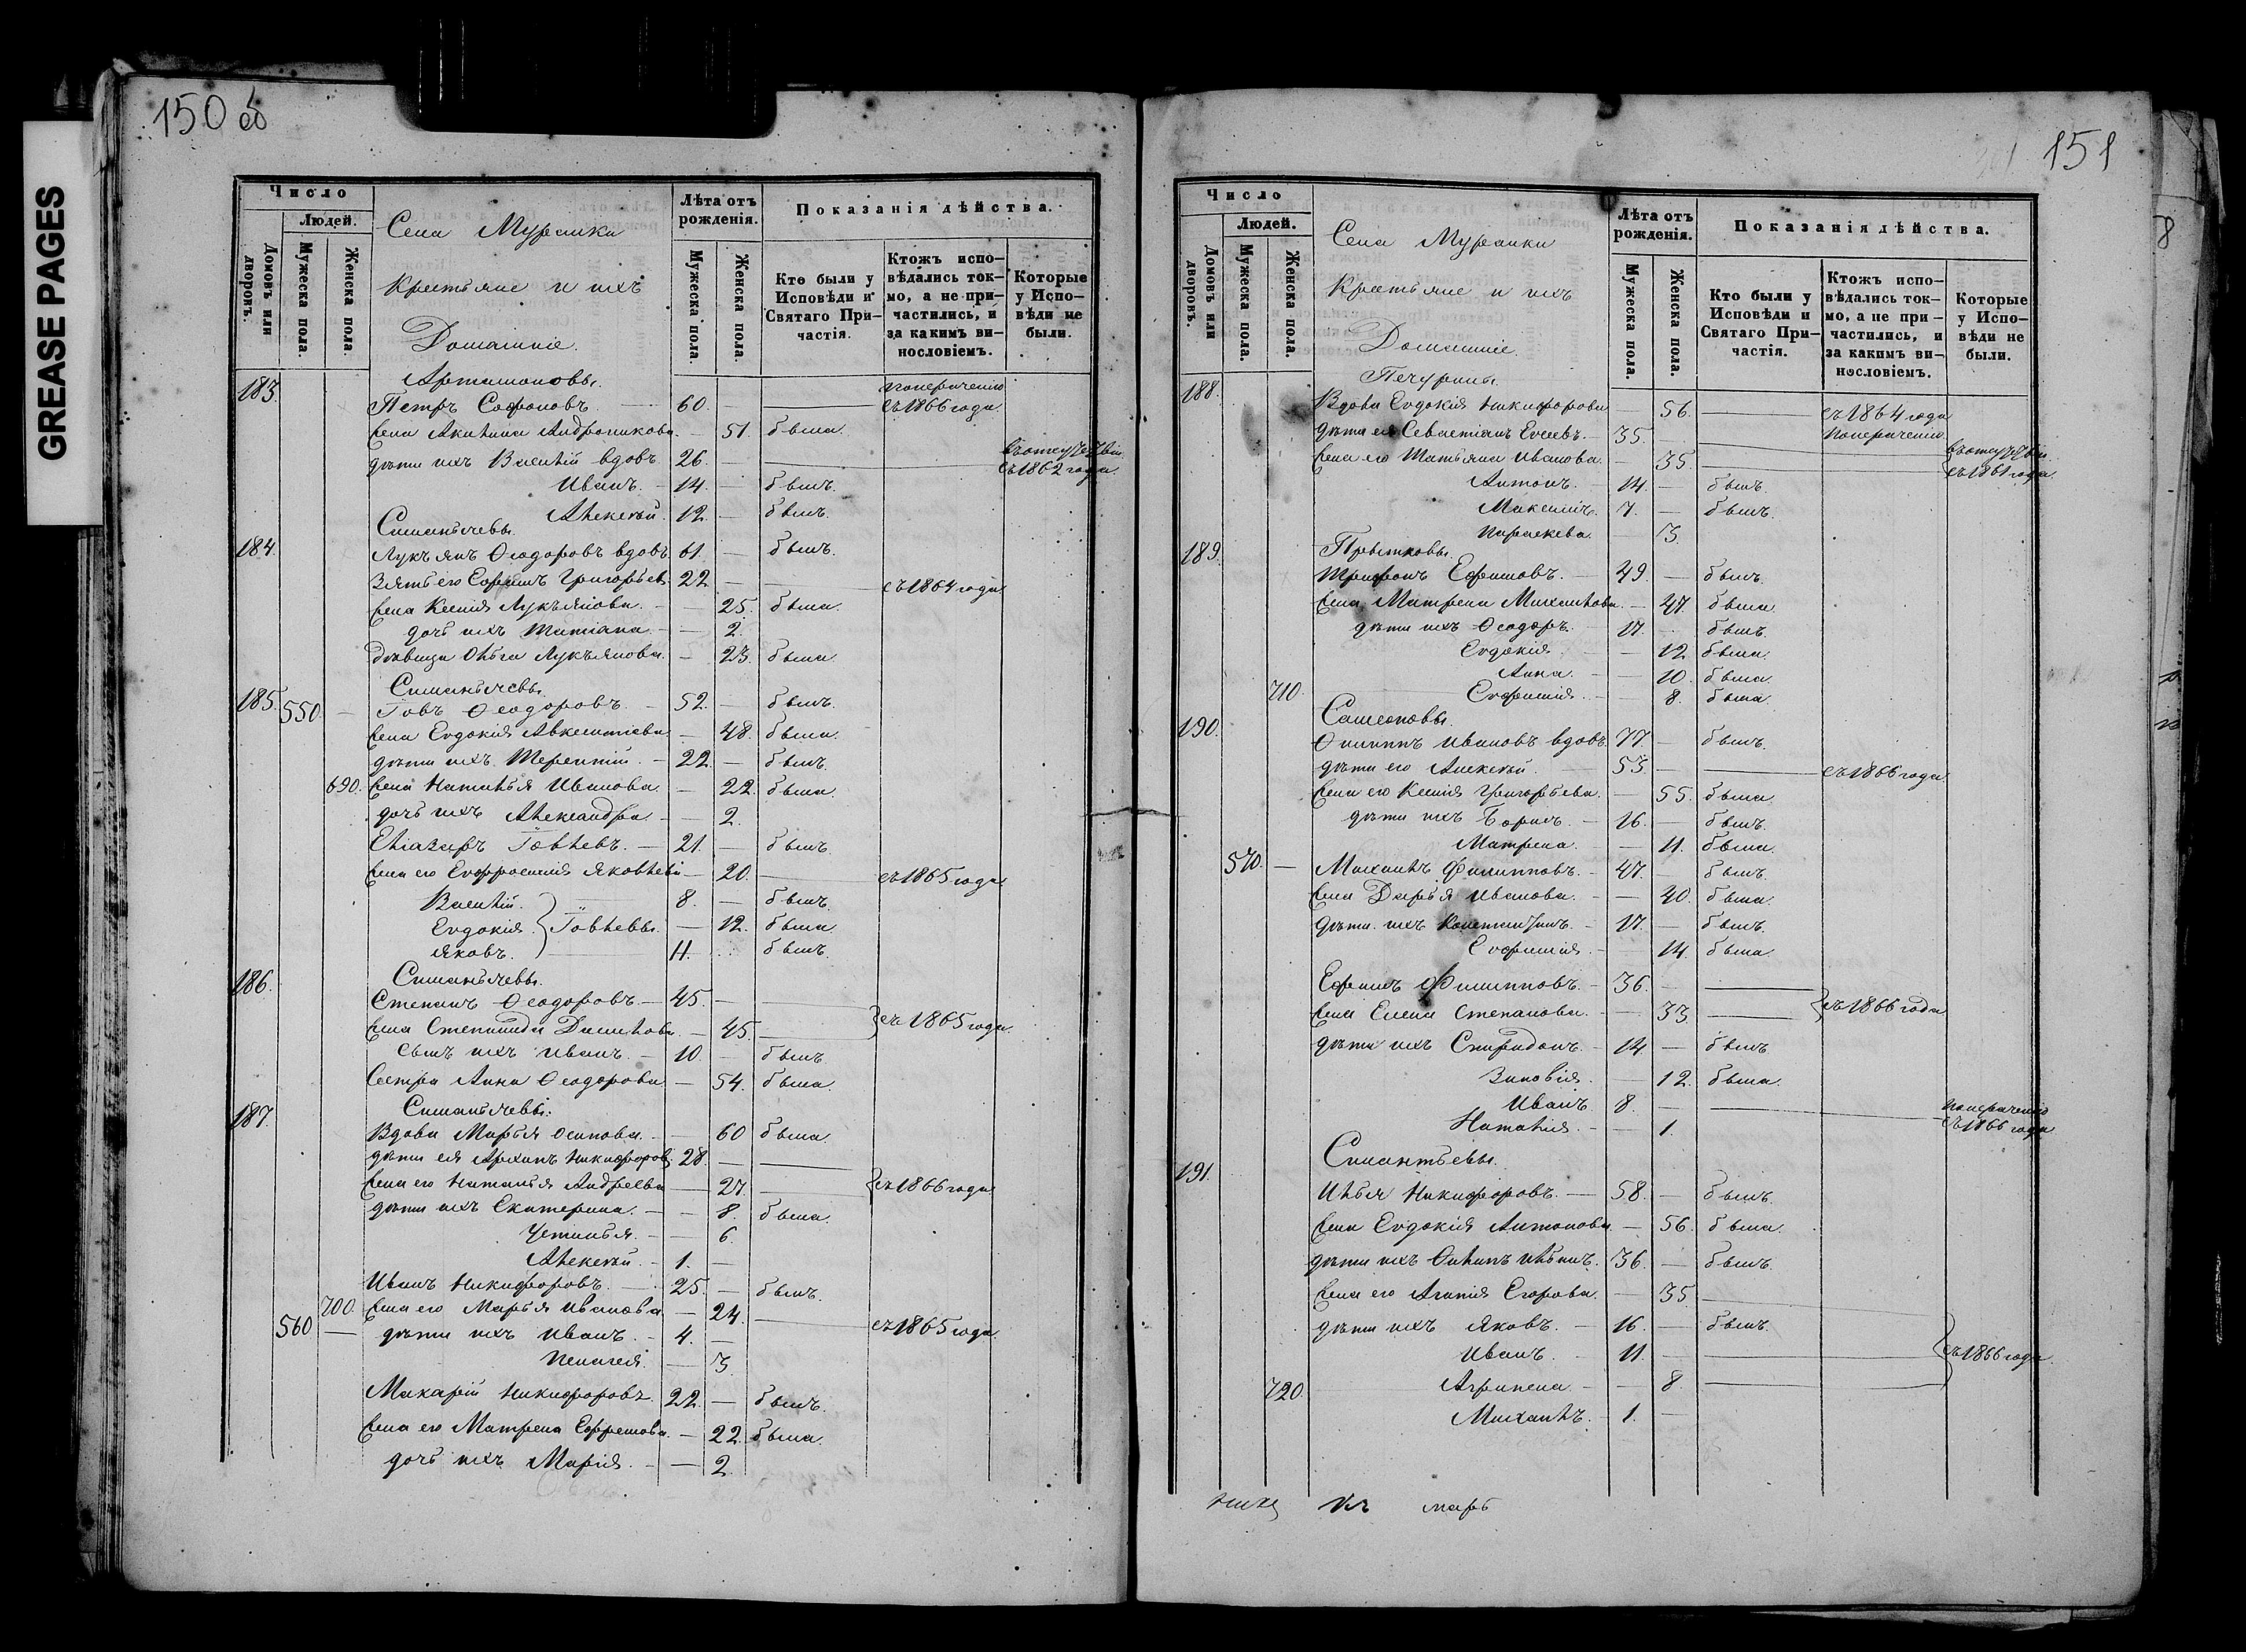 GREASE PAGES
150 об
Число
Людей.
Домовъ или дворовъ.
Мужеска пола.
Женска пола.
Села Муранки
Крестьяне и ихъ
Домашніе.
Лѣта отъ рожденія.
Мужеска пола.
Женска пола.
Показанія дѣйства.
Кто были у Исповѣди и Святаго Причастія.
Ктожъ исповѣдались токмо, а не причастились, и за какимъ винословіемъ.
Которые у Исповѣди не были.
183. Артамоновы.
Петръ Софоновъ. 60. — по нераченію съ 1866 года.
Жена Акилина Андроникова. — 51. была.
дѣти ихъ Василій вдовъ 26. — въ отсутствіи съ 1862 года.
Иванъ. — 14. — былъ.
Алексѣй. 12. — былъ.
Симанычевы.
184. Лукъянъ Ѳеодоровъ вдовъ 61. — былъ.
Зять его Ефимъ Григорьев. 22. — съ 1864 года
Жена Ксенія Лукъянова. — 25. была.
дочь ихъ Татіана. — 2.
дѣвица Ольга Лукъянова. — 23. была.
Симанычевы.
185. 550. — Іовъ Ѳеодоровъ. — 52. — былъ.
Жена Евдокія Авксентіева — 48. была.
дѣти ихъ Терентій. — 22. — былъ.
690. Жена Наталья Иванова. — 22. была.
дочь ихъ Александра. — 2.
Еліазаръ Іовлевъ. — 21. — былъ.
Жена его Евфросинія Яковлева — 20. — съ 1865 года
Василій. 8. — былъ.
Евдокія. } Іовлевы. — 12. была
Яковъ. 11. былъ.
186. Симанычевы.
Степанъ Ѳеодоровъ — 45. —
Жена Степанида Данилова. — 45. } съ 1865 года.
сынъ ихъ Иванъ. — 10. — былъ.
Сестра Анна Ѳеодорова — 54. была.
187. Симанычевы.
Вдова Марья Осипова. — 60 была.
дѣти ея Архипъ Никифоров. 28. —
Жена его Наталья Андреева — 27. } съ 1866 года.
дѣти ихъ Екатерина. — 8. была.
Устинья. — 6.
Алексѣй. — 1. —
Иванъ Никифоровъ. — 25. — былъ.
700. Жена его Марья Иванова — 24.
560 — дѣти ихъ Иванъ. — 4. — съ 1865 года.
Пелагея. — 3.
Макарій Никифоровъ 22. — былъ.
Жена его Матрена Ефремова. — 22. была.
дочь ихъ Марія. — 2.
151
Число
Людей.
Домовъ или дворовъ.
Мужеска пола.
Женска пола.
Села Муранки
Крестьяне и ихъ
Домашніе.
Лѣта отъ рожденія.
Мужеска пола.
Женска пола.
Показанія дѣйства.
Кто были у Исповѣди и Святаго Причастія.
Ктожъ исповѣдались токмо, а не причастились, и за какимъ винословіемъ.
Которые у Исповѣди не были.
188. Печурины.
Вдова Евдокія Никифорова — 56. — съ 1864 года
дѣти ея Севастіанъ Евсеевъ. 35. — по нераченію
Жена его Татьяна Иванова. — 35. — въ отсутствіи съ 1861 года.
Антонъ. — 14. — былъ.
Максимъ. 7. — былъ.
Параскева. — 3.
189.
Трифонъ Ефимовъ. — 49. — былъ.
Жена Матрена Михайлова. — 47. была.
дѣти ихъ Ѳеодоръ. — 17. — былъ.
Евдокія. — 12. была.
Анна. — 10. была.
710. Евфимія. — 8. была.
190. Самсоновы.
Филиппъ Ивановъ вдовъ. 77. — былъ.
дѣти его Алексѣй. — 53. — съ 1866 года
Жена его Ксенія Григорьева. — 55. была.
дѣти ихъ Борисъ. — 16. — былъ.
Матрена. — 11. была.
570. — Михаилъ Филипповъ. — 47. — былъ.
Жена Дарья Иванова. — 40. была.
дѣти ихъ Константинъ. — 17. — былъ.
Евфимія. — 14. была.
Ефимъ Филипповъ. — 36. —
Жена Елена Степанова. — 33. } съ 1866 года
дѣти ихъ Спиридонъ. — 14. — былъ
Зиновія. — 12. была.
Иванъ 8. — по нераченію
Наталія. — 1. съ 1866 года
191. Силантьевы.
Илья Никифоровъ. — 58. — былъ.
Жена Евдокія Антонова — 56. была.
дѣти ихъ Филипъ Ильинъ. 36. — былъ.
Жена его Агапія Егорова. — 35.
дѣти ихъ Яковъ. — 16. — былъ.
Иванъ. — 11. — } съ 1866 года.
720. Агрипена. — 8.
Михаилъ. — 1. —